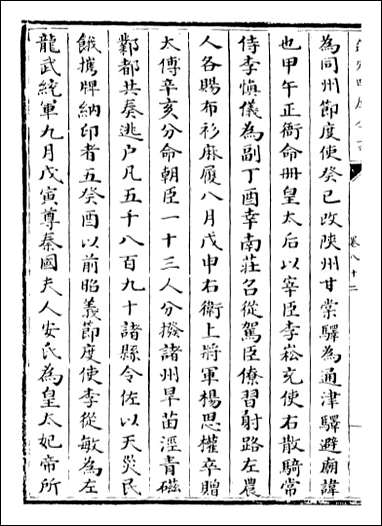 為同州節度使癸巳改陝州甘棠驛為通津驛避廟諱
也甲午正衙命冊皇太后以宰臣李崧充使右散騎常
侍李慎儀為副丁酉幸南莊召從駕臣僚習射路左農
人各賜布衫麻履八月戊申右衛上將軍楊思權卒贈
太傅辛亥分命朝臣一十三人分檢諸州旱苗涇青磁
鄴都共奏逃户凡五千八百九十諸縣令佐以天災民
餓攜牌納印者五癸酉以前昭義節度使李從敏為左
龍武統軍九月戊寅尊秦國夫人安氏為皇太妃帝所
卷八十二